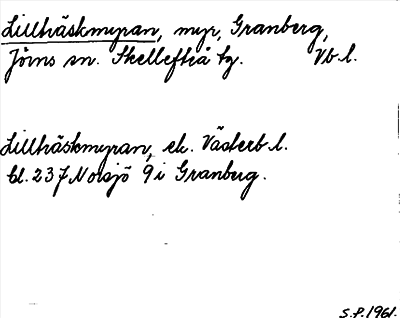 Lillträskmyran, myr, Granberg,
Jörns sn. Skellefteå tg. Vb.l.
Lillträskmyran, ek. Västerb. l.
bl. 237 Norsjö 9i Granberg.
S.P. 1961.